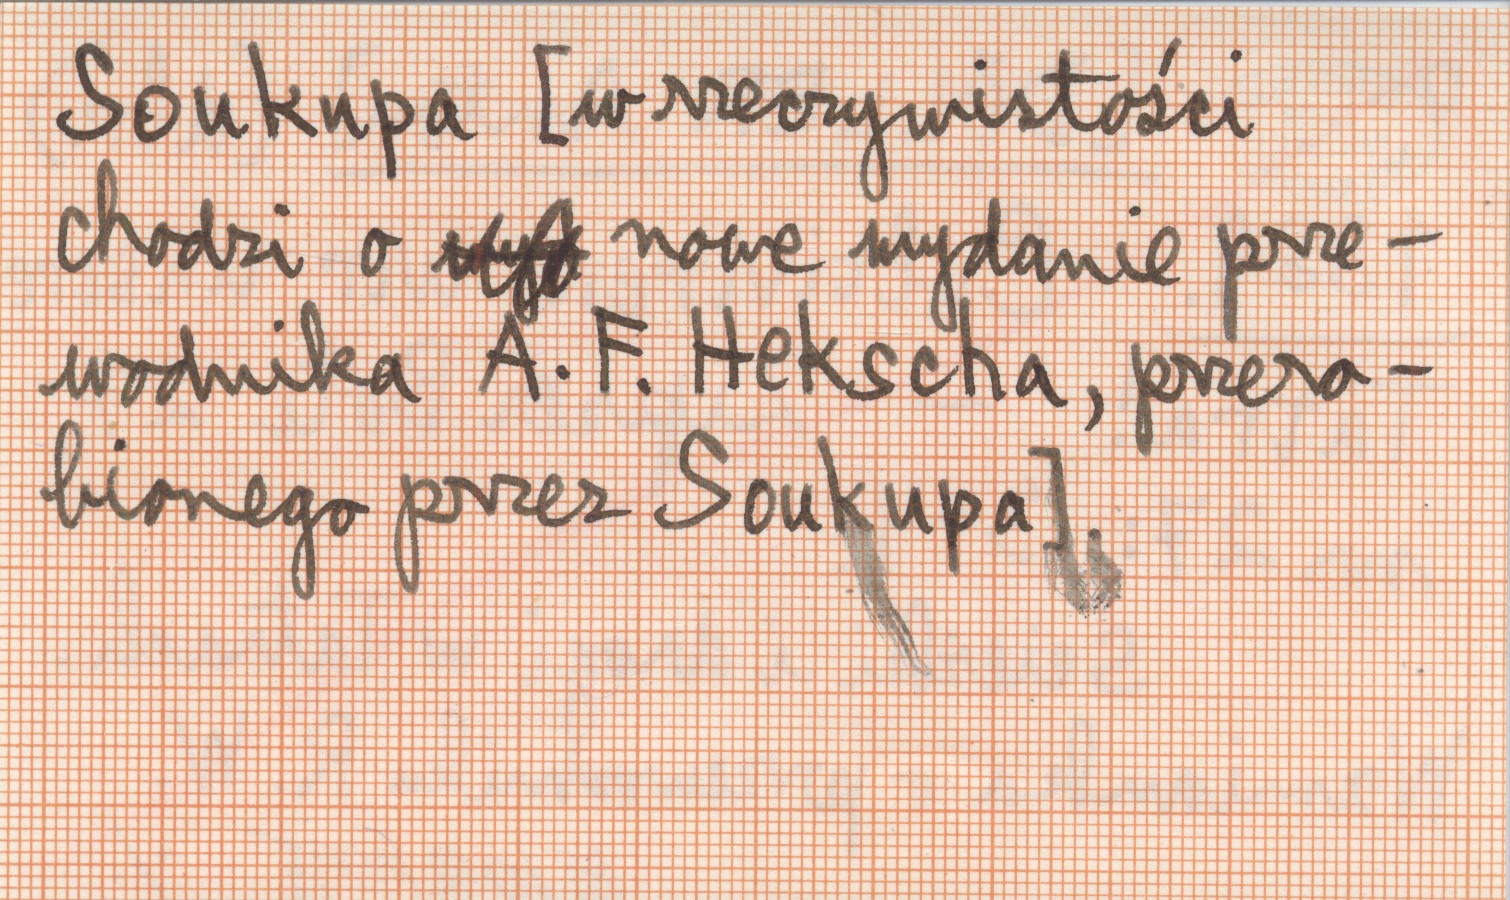 Soukupa [w rzeczywistości
chodzi o nowe wydanie prze-
wodnika A. F. Hekscha, przero-
bionego przez Soukupa].